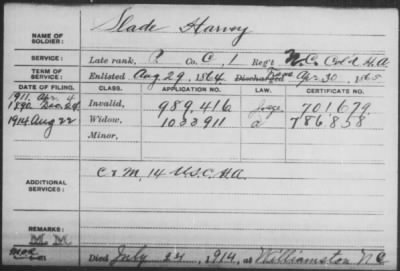 NAME OF SOLDIER: Slade Harvey
SERVICE: Late rank, P. Co. C, 1 Reg't N.C. Col'd H.A.
TERM OF SERVICE: Enlisted Aug 29, 1864 Discharged Apr. 30, 1865
DATE OF FILING. CLASS. APPLICATION NO. LAW. CERTIFICATE NO.
1911. Apr. 4
1890 Dec. 24 Invalid, 989,416 701679
1914 Aug 22 Widow, 1033911 786,858
Minor,
ADDITIONAL SERVICES: C & M, 14 U.S.C.H.A.
REMARKS:
Died July 24, 1914, at Williamston N.C.